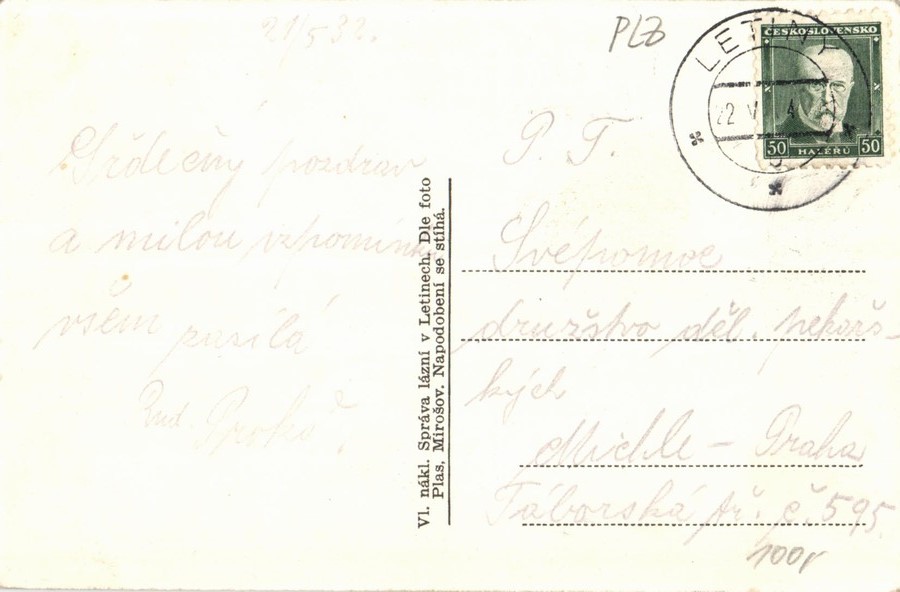 21/5 32.
PLZ
LETINY
22 V
ČESKOSLOVENSKO
50 HALÉŘŮ 50
Srdečný pozdrav
a milou vzpomínku
všem zasílá
Rud.
P. T.
Svépomoc
družstvo děl. pekařs-
kých
Michle - Praha
Táborská tř. č. 595
100r
Vl. nákl. Správa lázní v Letinech. Dle foto
Plas, Mirošov. Napodobení se stíhá.